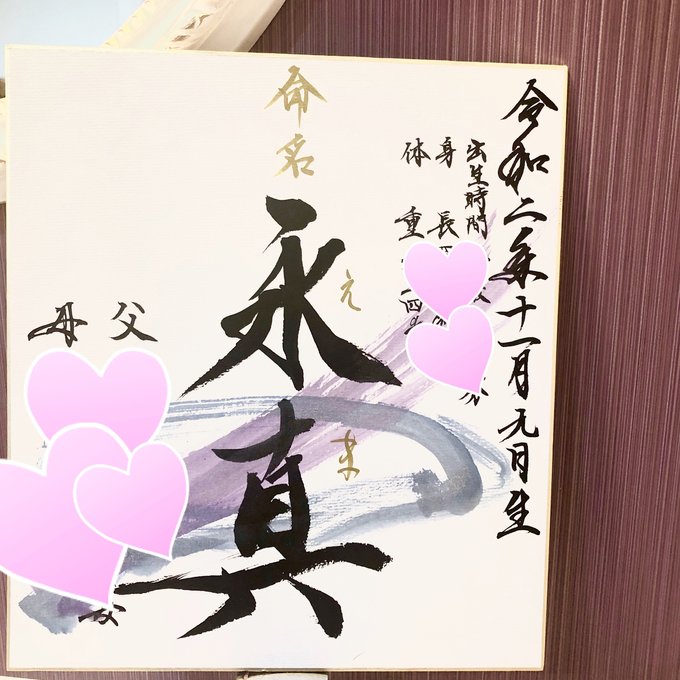 令和二年十一月九日生
出生時間
身長
体重 四
命名
永真
えま
父
母